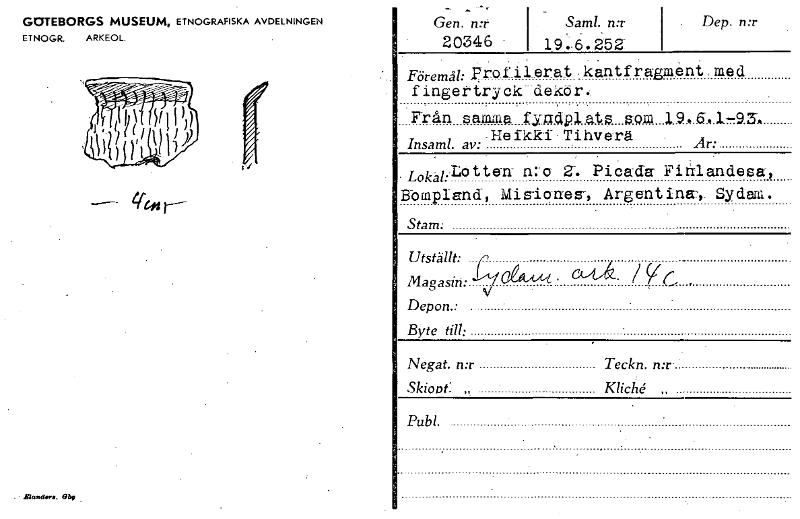 GÖTEBORGS MUSEUM, ETNOGRAFISKA AVDELNINGEN
ETNOGR. ARKEOL.
4 cm
Elanders, Gbg
Gen. n:r Saml. n:r Dep. n:r
20346 19.6.252
Föremål: Profilerat kantfragment med
fingertryck dekor.
Från samma fyndplats som 19.6.1-93.
Insaml. av: Heikki Tihverä År:
Lokal: Lotten n:o 2. Picada Finlandesa,
Bompland, Misiones, Argentina, Sydam.
Stam:
Utställt:
Magasin: Sydam. ark. 14 C
Depon.:
Byte till:
Negat. n:r Teckn. n:r
Skiopt. „ Kliché „
Publ.